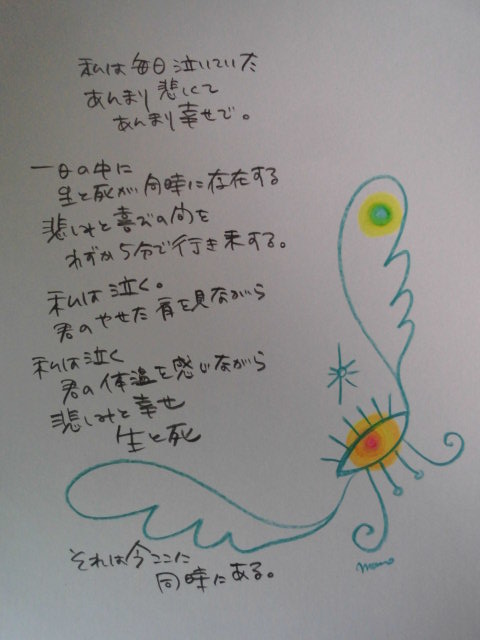 私は毎日泣いていた
あんまり悲しくて
あんまり幸せで。
一日の中に
生と死が同時に存在する
悲しみと喜びの向を
わずか5分で行き来する。
私は泣く。
君のやせた肩を見ながら
私は泣く
君の体温を感じながら
悲しみと幸せ
生と死
それは今ここに
同時にある。
mano